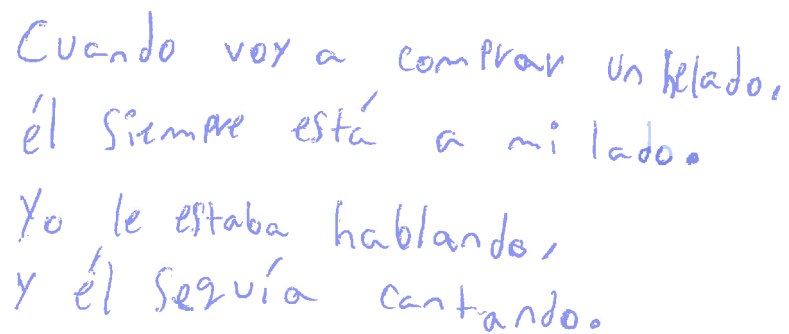 Cuando voy a comprar un helado,
él siempre está a mi lado.
Yo le estaba hablando,
y él seguía cantando.